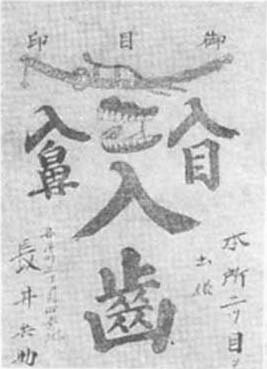 御目印
入目
入歯
入鼻
本所二ツ目
出張
長井兵助